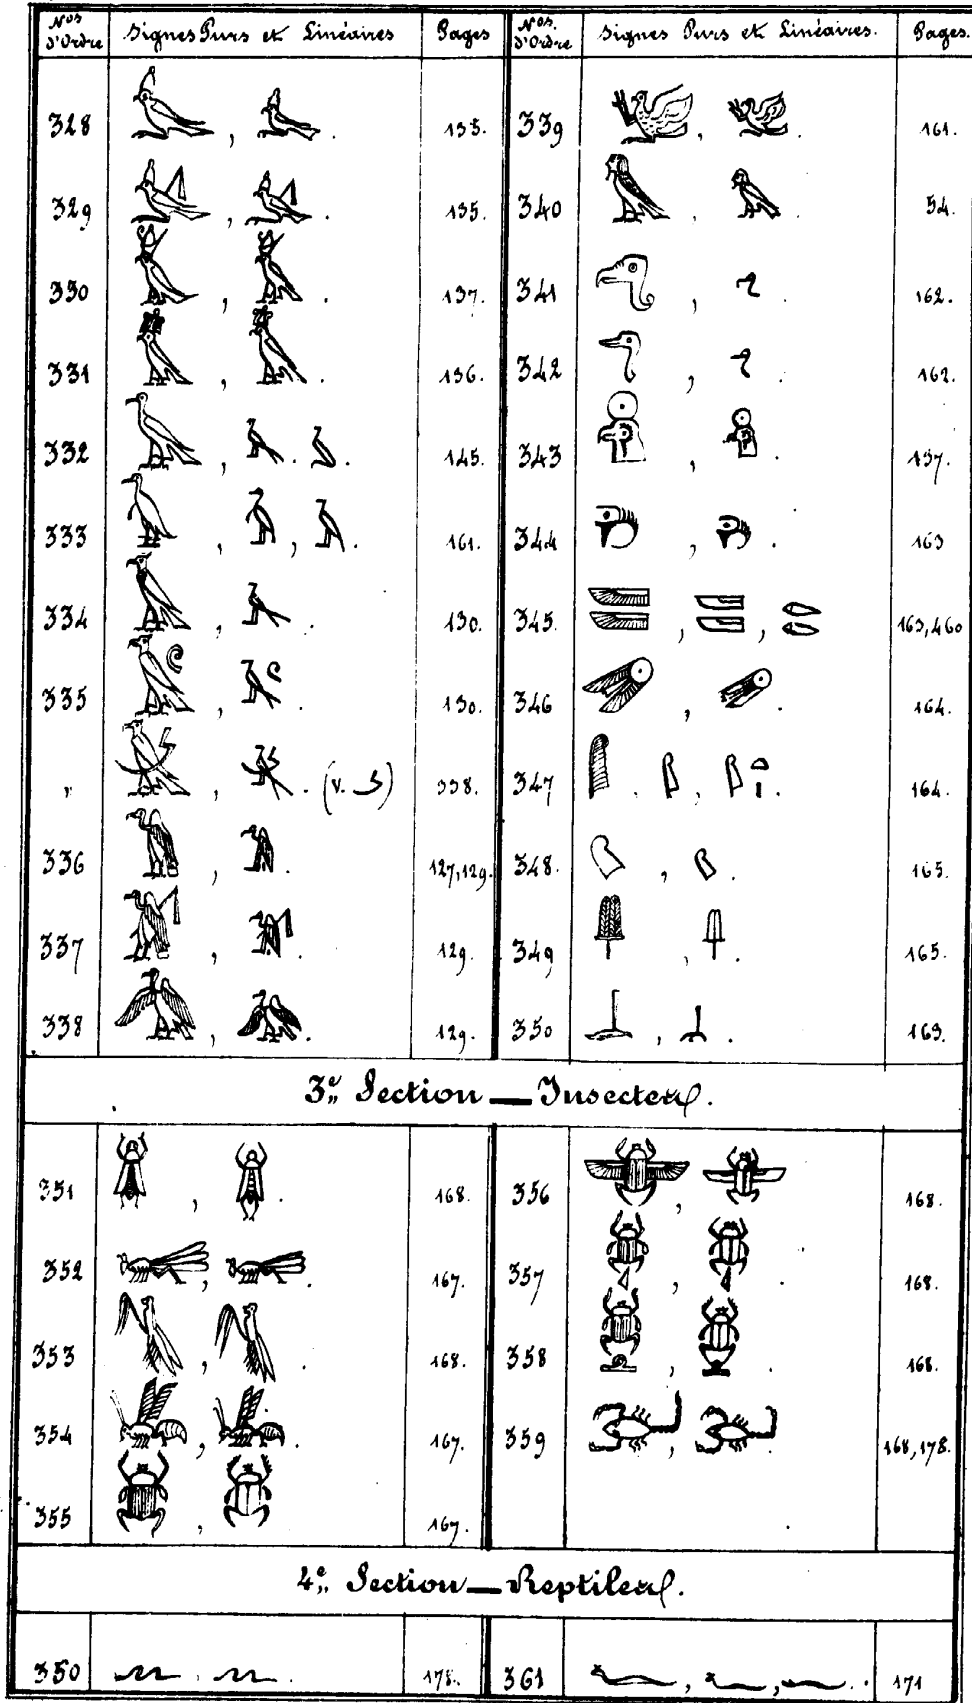 Nos d'Ordre Signes Purs et Linéaires Pages Nos d'Ordre Signes Purs et Linéaires. Pages.
328 , . 135. 339 , . 161.
329 , . 135. 340 , . 54.
330 , . 137. 341 , . 162.
331 , . 136. 342 , . 162.
332 , . . 145. 343 , . 137.
333 , , . 161. 344 , . 163
334 , . 130. 345. , , 163,460
335 , . 130. 346 , . 164.
" , . (v. ) 338. 347 . , . 164.
336 , . 127,129. 348. , . 165.
337 , . 129. 349 , . 165.
338 , . 129. 350 , . 163.
3e. Section — Insectes.
351 , . 168. 356 , . 168.
352 , . 167. 357 , . 168.
353 , . 168. 358 , . 168.
354 , . 167. 359 , . 168,178.
355 , 167.
4e. Section — Reptiles.
350 , . 178. 361 , , . 171